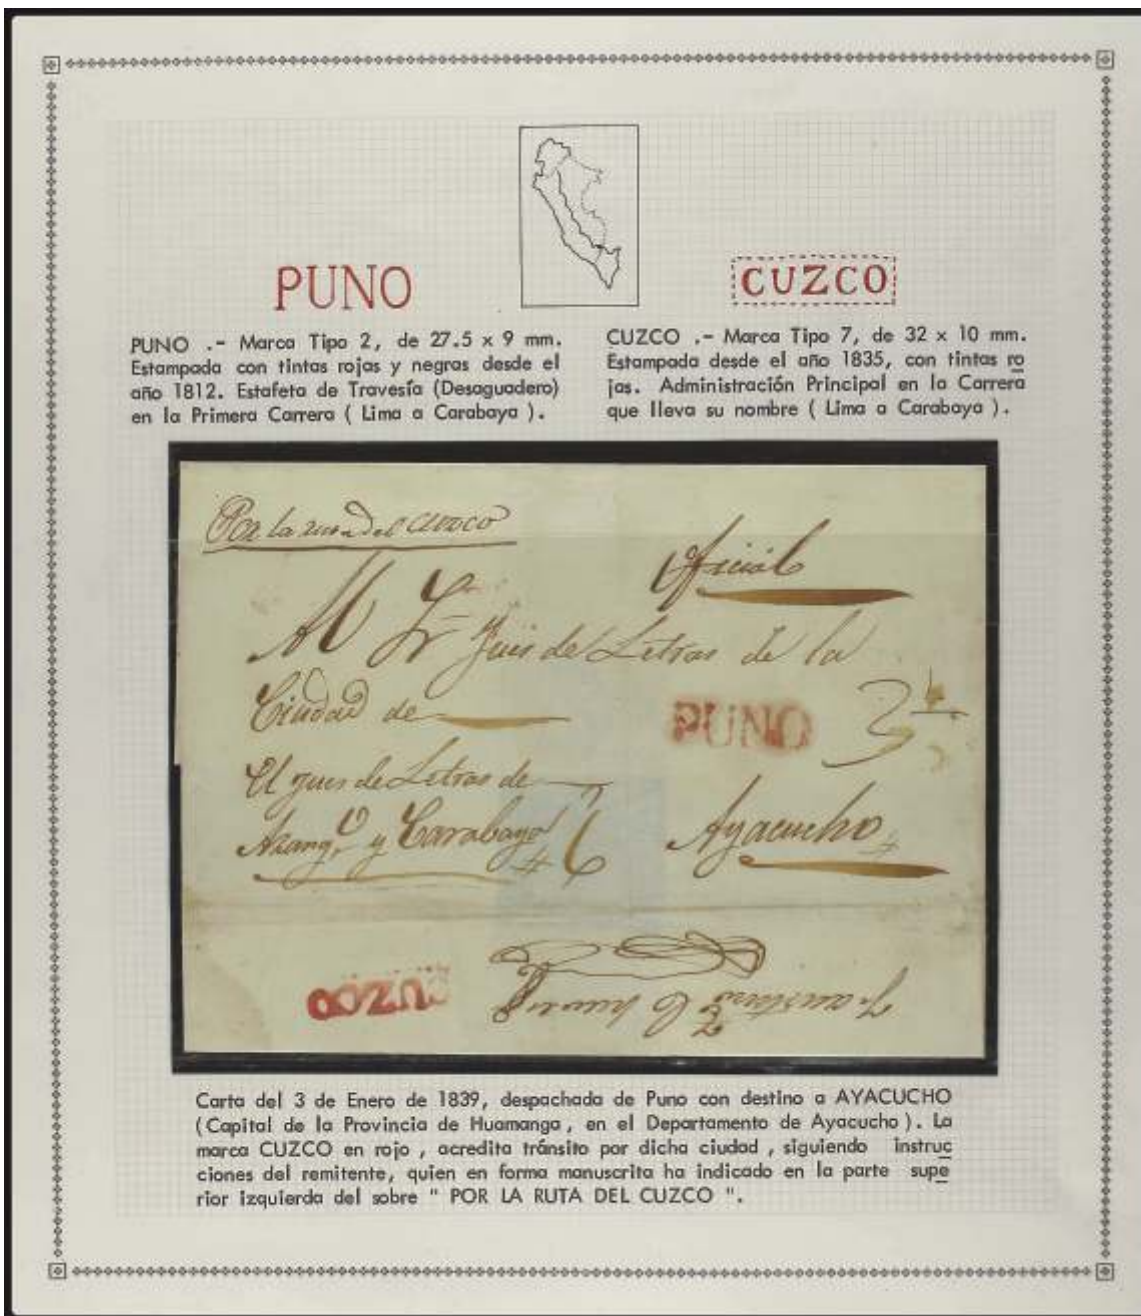 PUNO
CUZCO
PUNO .- Marca Tipo 2, de 27.5 x 9 mm.
Estampada con tintas rojas y negras desde el
año 1812. Estafeta de Travesía (Desaguadero)
en la Primera Carrera ( Lima a Carabaya ).
CUZCO .- Marca Tipo 7, de 32 x 10 mm.
Estampada desde el año 1835, con tintas ro
jas. Administración Principal en la Carrera
que lleva su nombre ( Lima a Carabaya ).
Por la ruta del Cuzco
Oficial
Al Sr Jues de Letras de la
Ciudad de
PUNO
3
El jues de Letras de
Azang.º y Carabaya
6
Ayacucho
CUZCO
Carta del 3 de Enero de 1839, despachada de Puno con destino a AYACUCHO
(Capital de la Provincia de Huamanga, en el Departamento de Ayacucho). La
marca CUZCO en rojo, acredita tránsito por dicha ciudad, siguiendo instruc
ciones del remitente, quien en forma manuscrita ha indicado en la parte supe
rior izquierda del sobre " POR LA RUTA DEL CUZCO ".